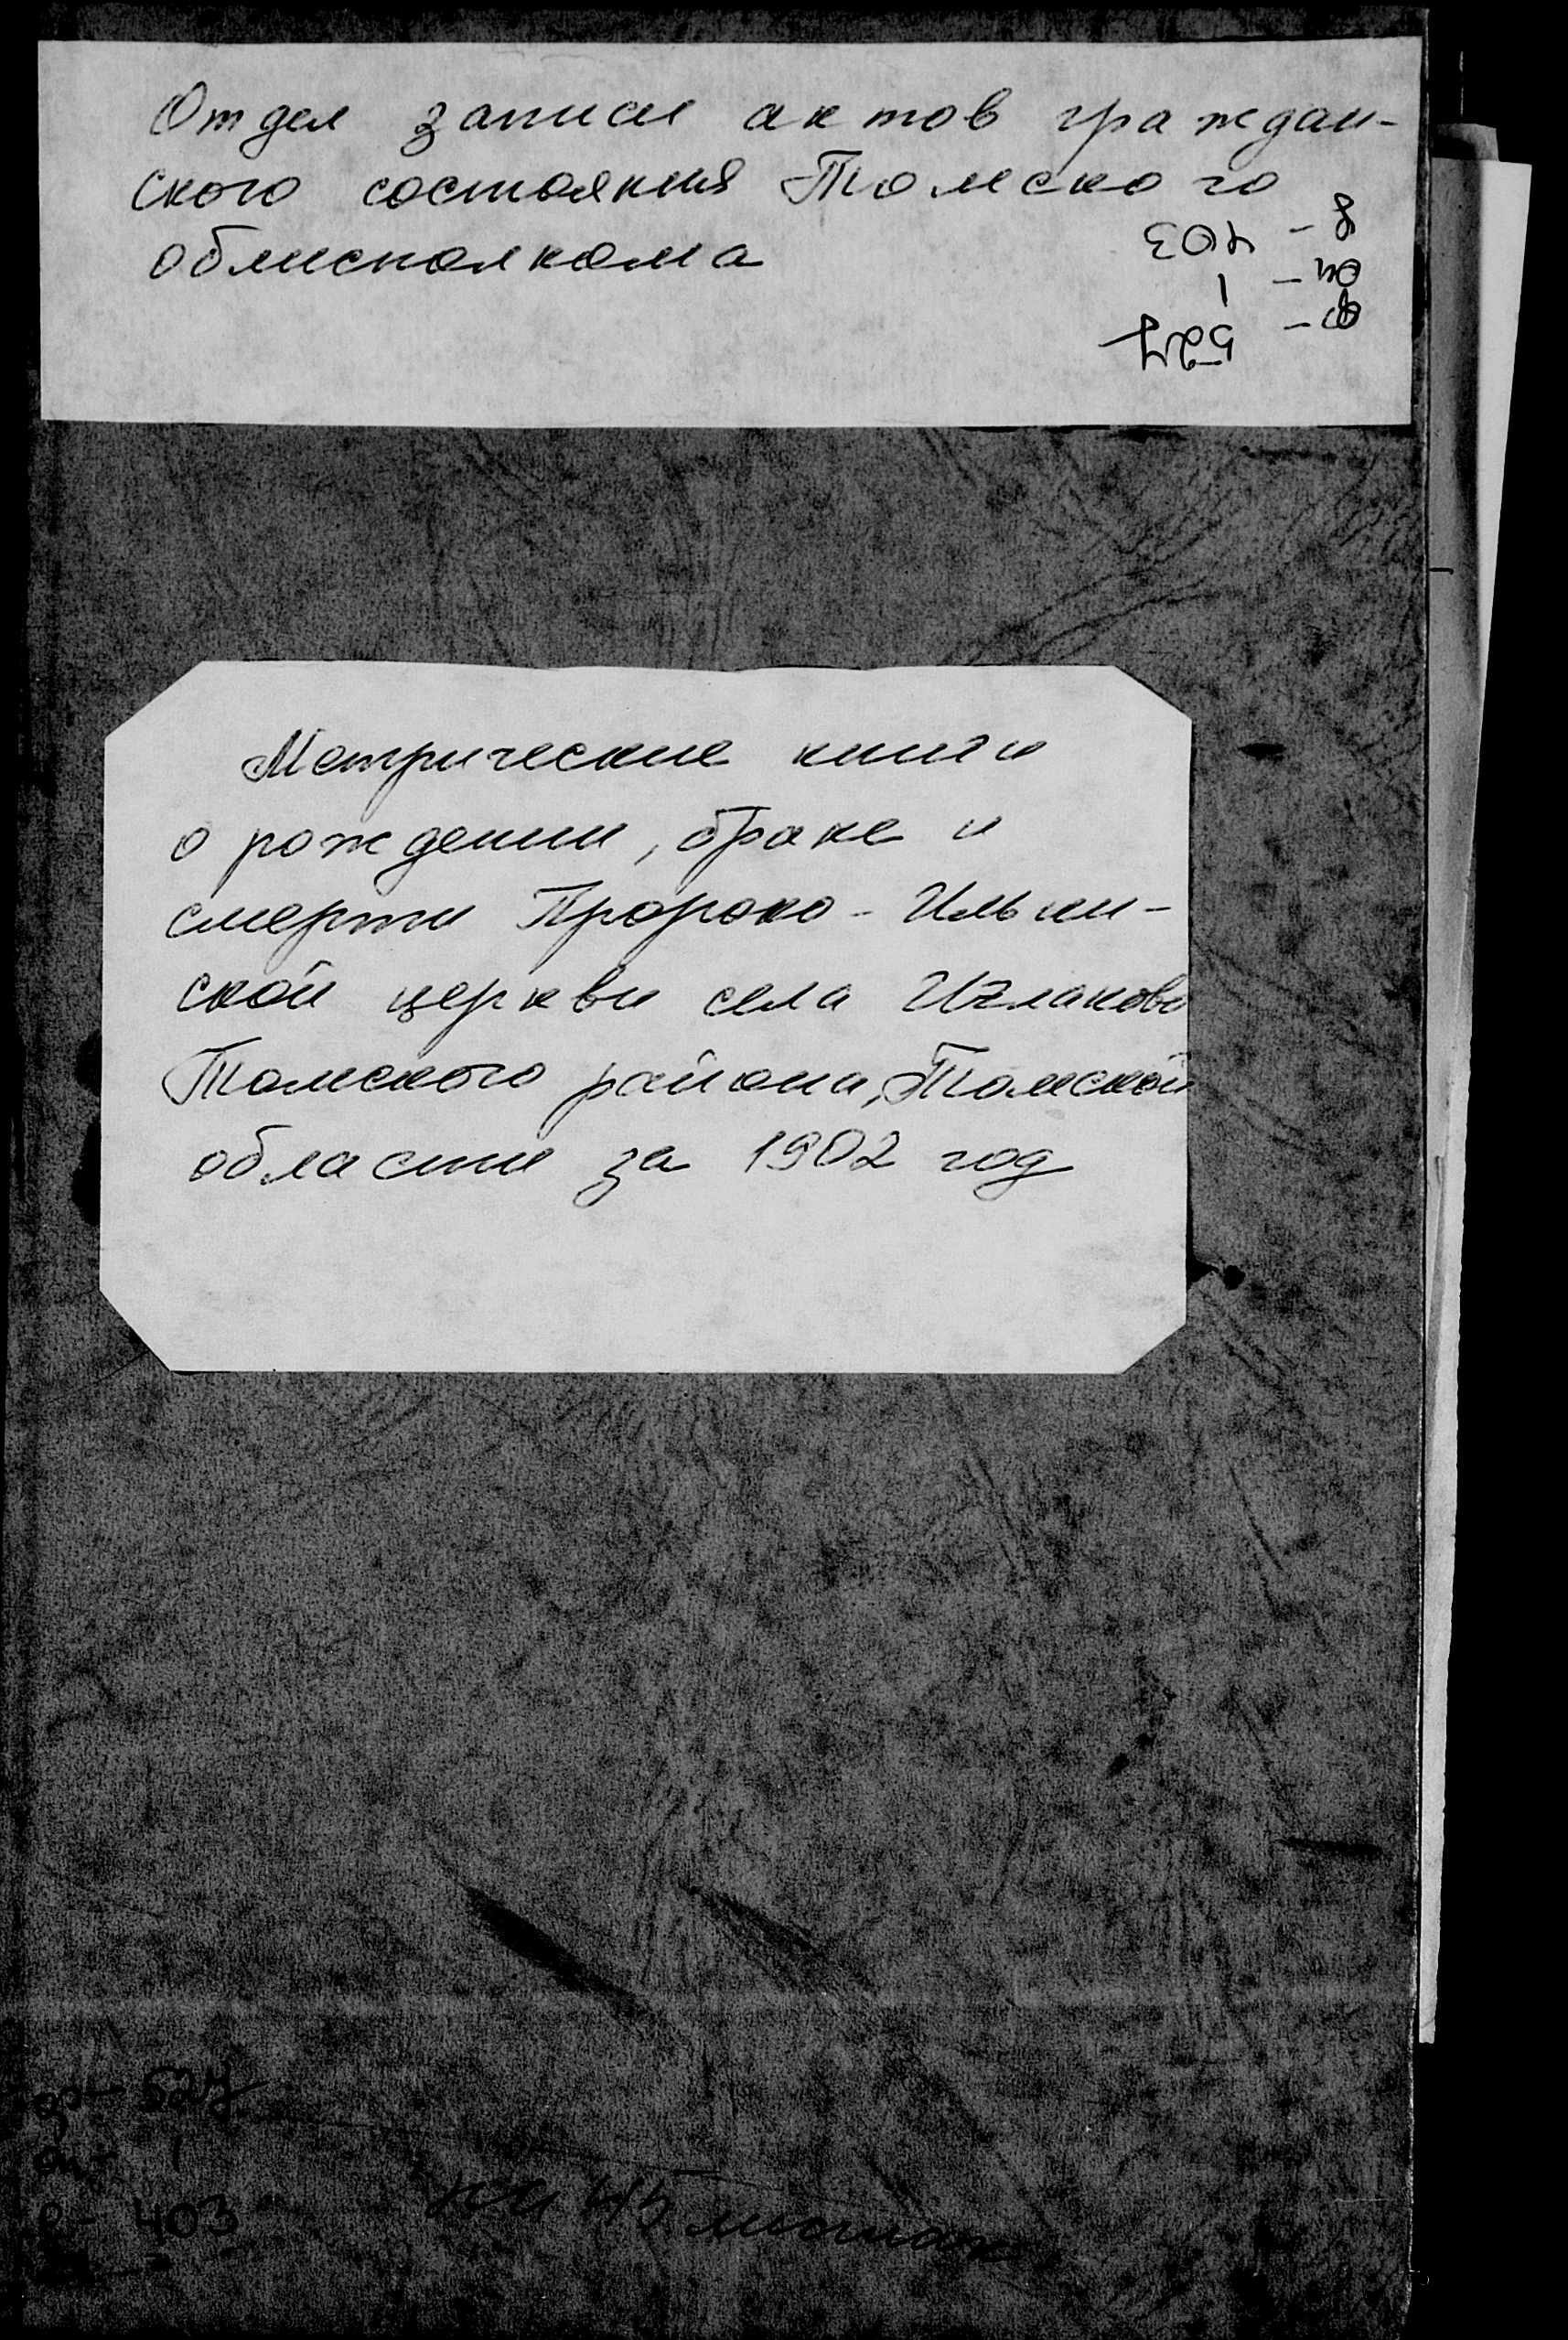 Отдел записи актов граждан-
ского состояния Томского
облисполкома
ф- 527
оп- 1
д- 403
Метрические книги
о рождении, браке и
смерти Пророко-Ильин-
ской церкви села Иглаково
Томского района, Томской
области за 1902 год
ф- 527
оп- 1
д- 403
на листах